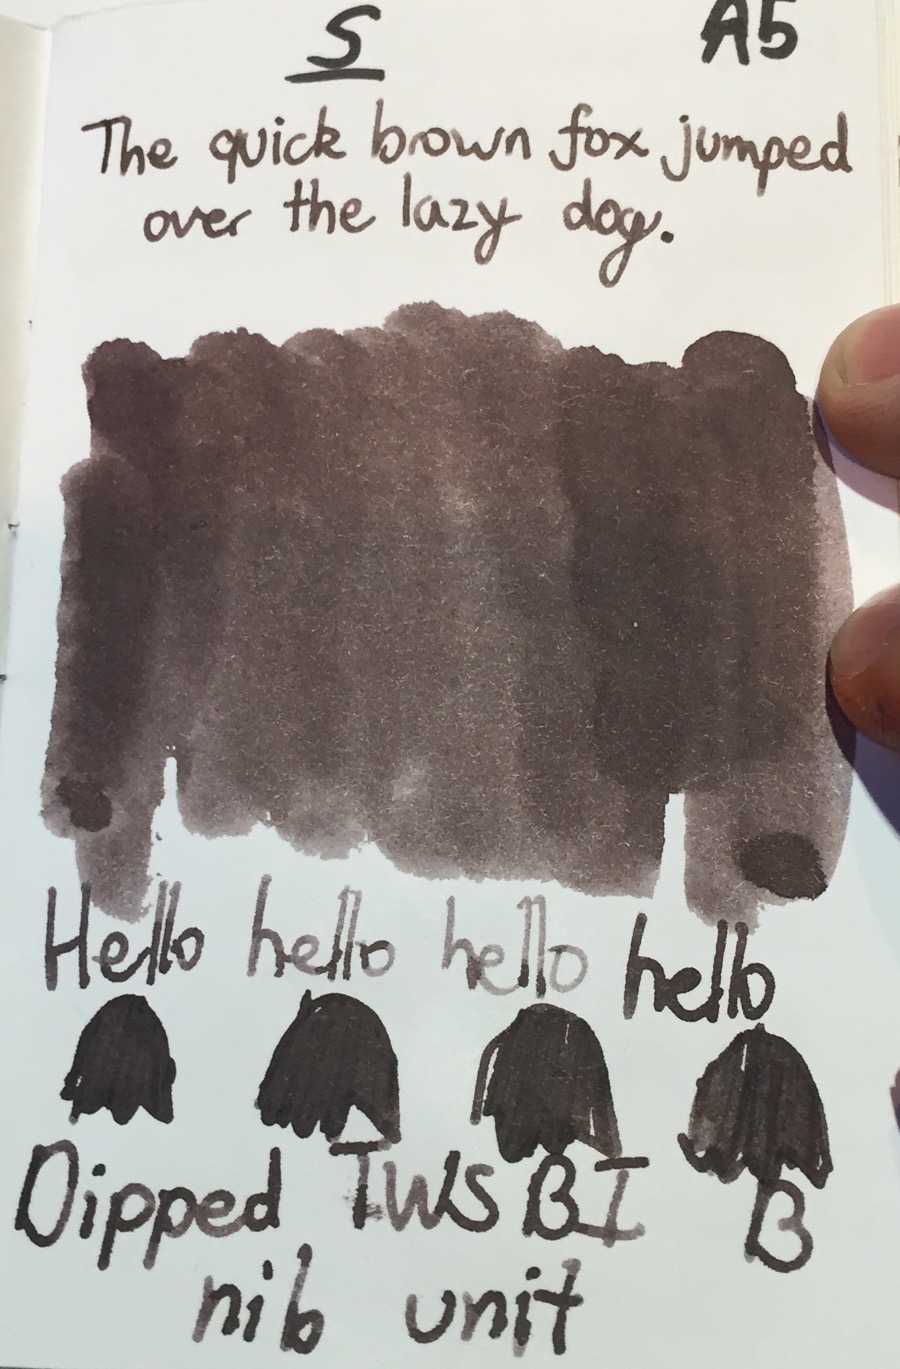 S A5
The quick brown fox jumped
over the lazy dog.
Hello hello hello hello
Dipped TWSBI B
nib unit